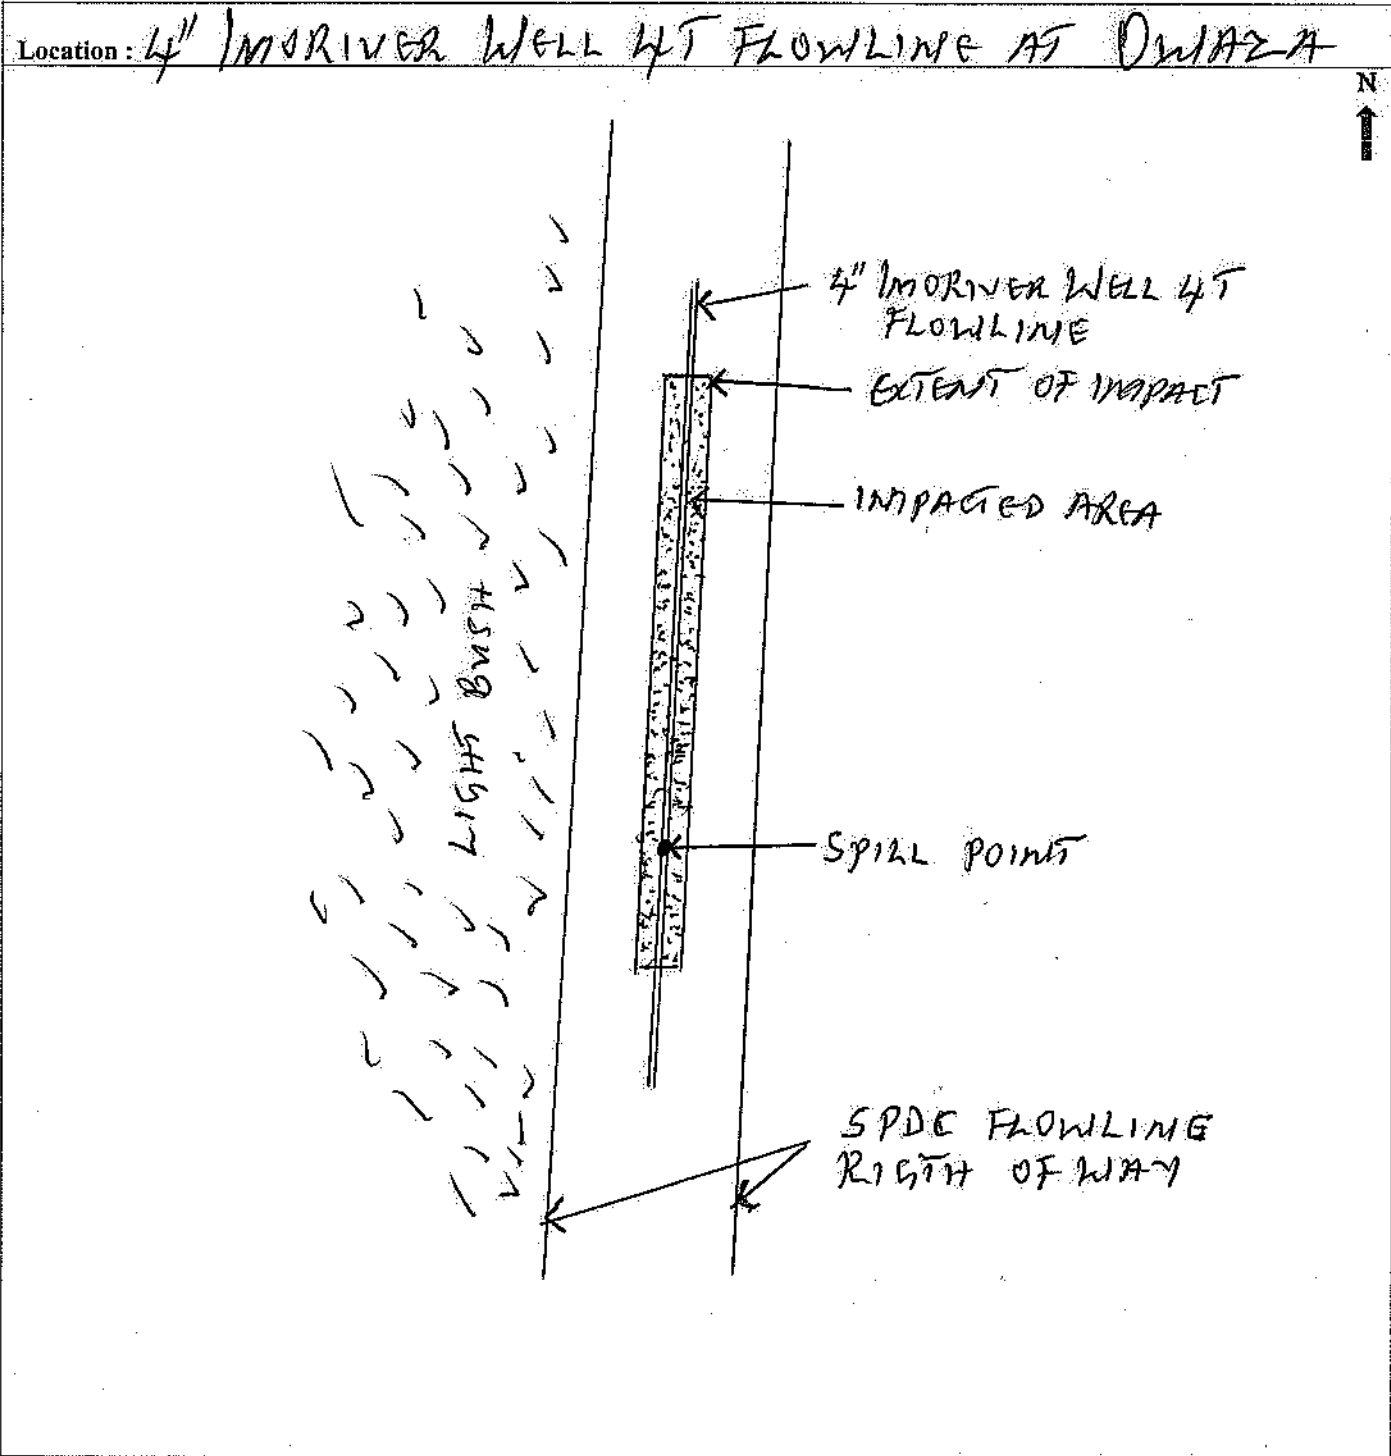 Location : 4" IMORIVER WELL 4T FLOWLINE AT OWAZA
N
4" IMORIVER WELL 4T
FLOWLINE
EXTENT OF IMPACT
IMPACTED AREA
LIGHT BUSH
SPILL POINT
SPDC FLOWLINE
RIGTH OF WAY